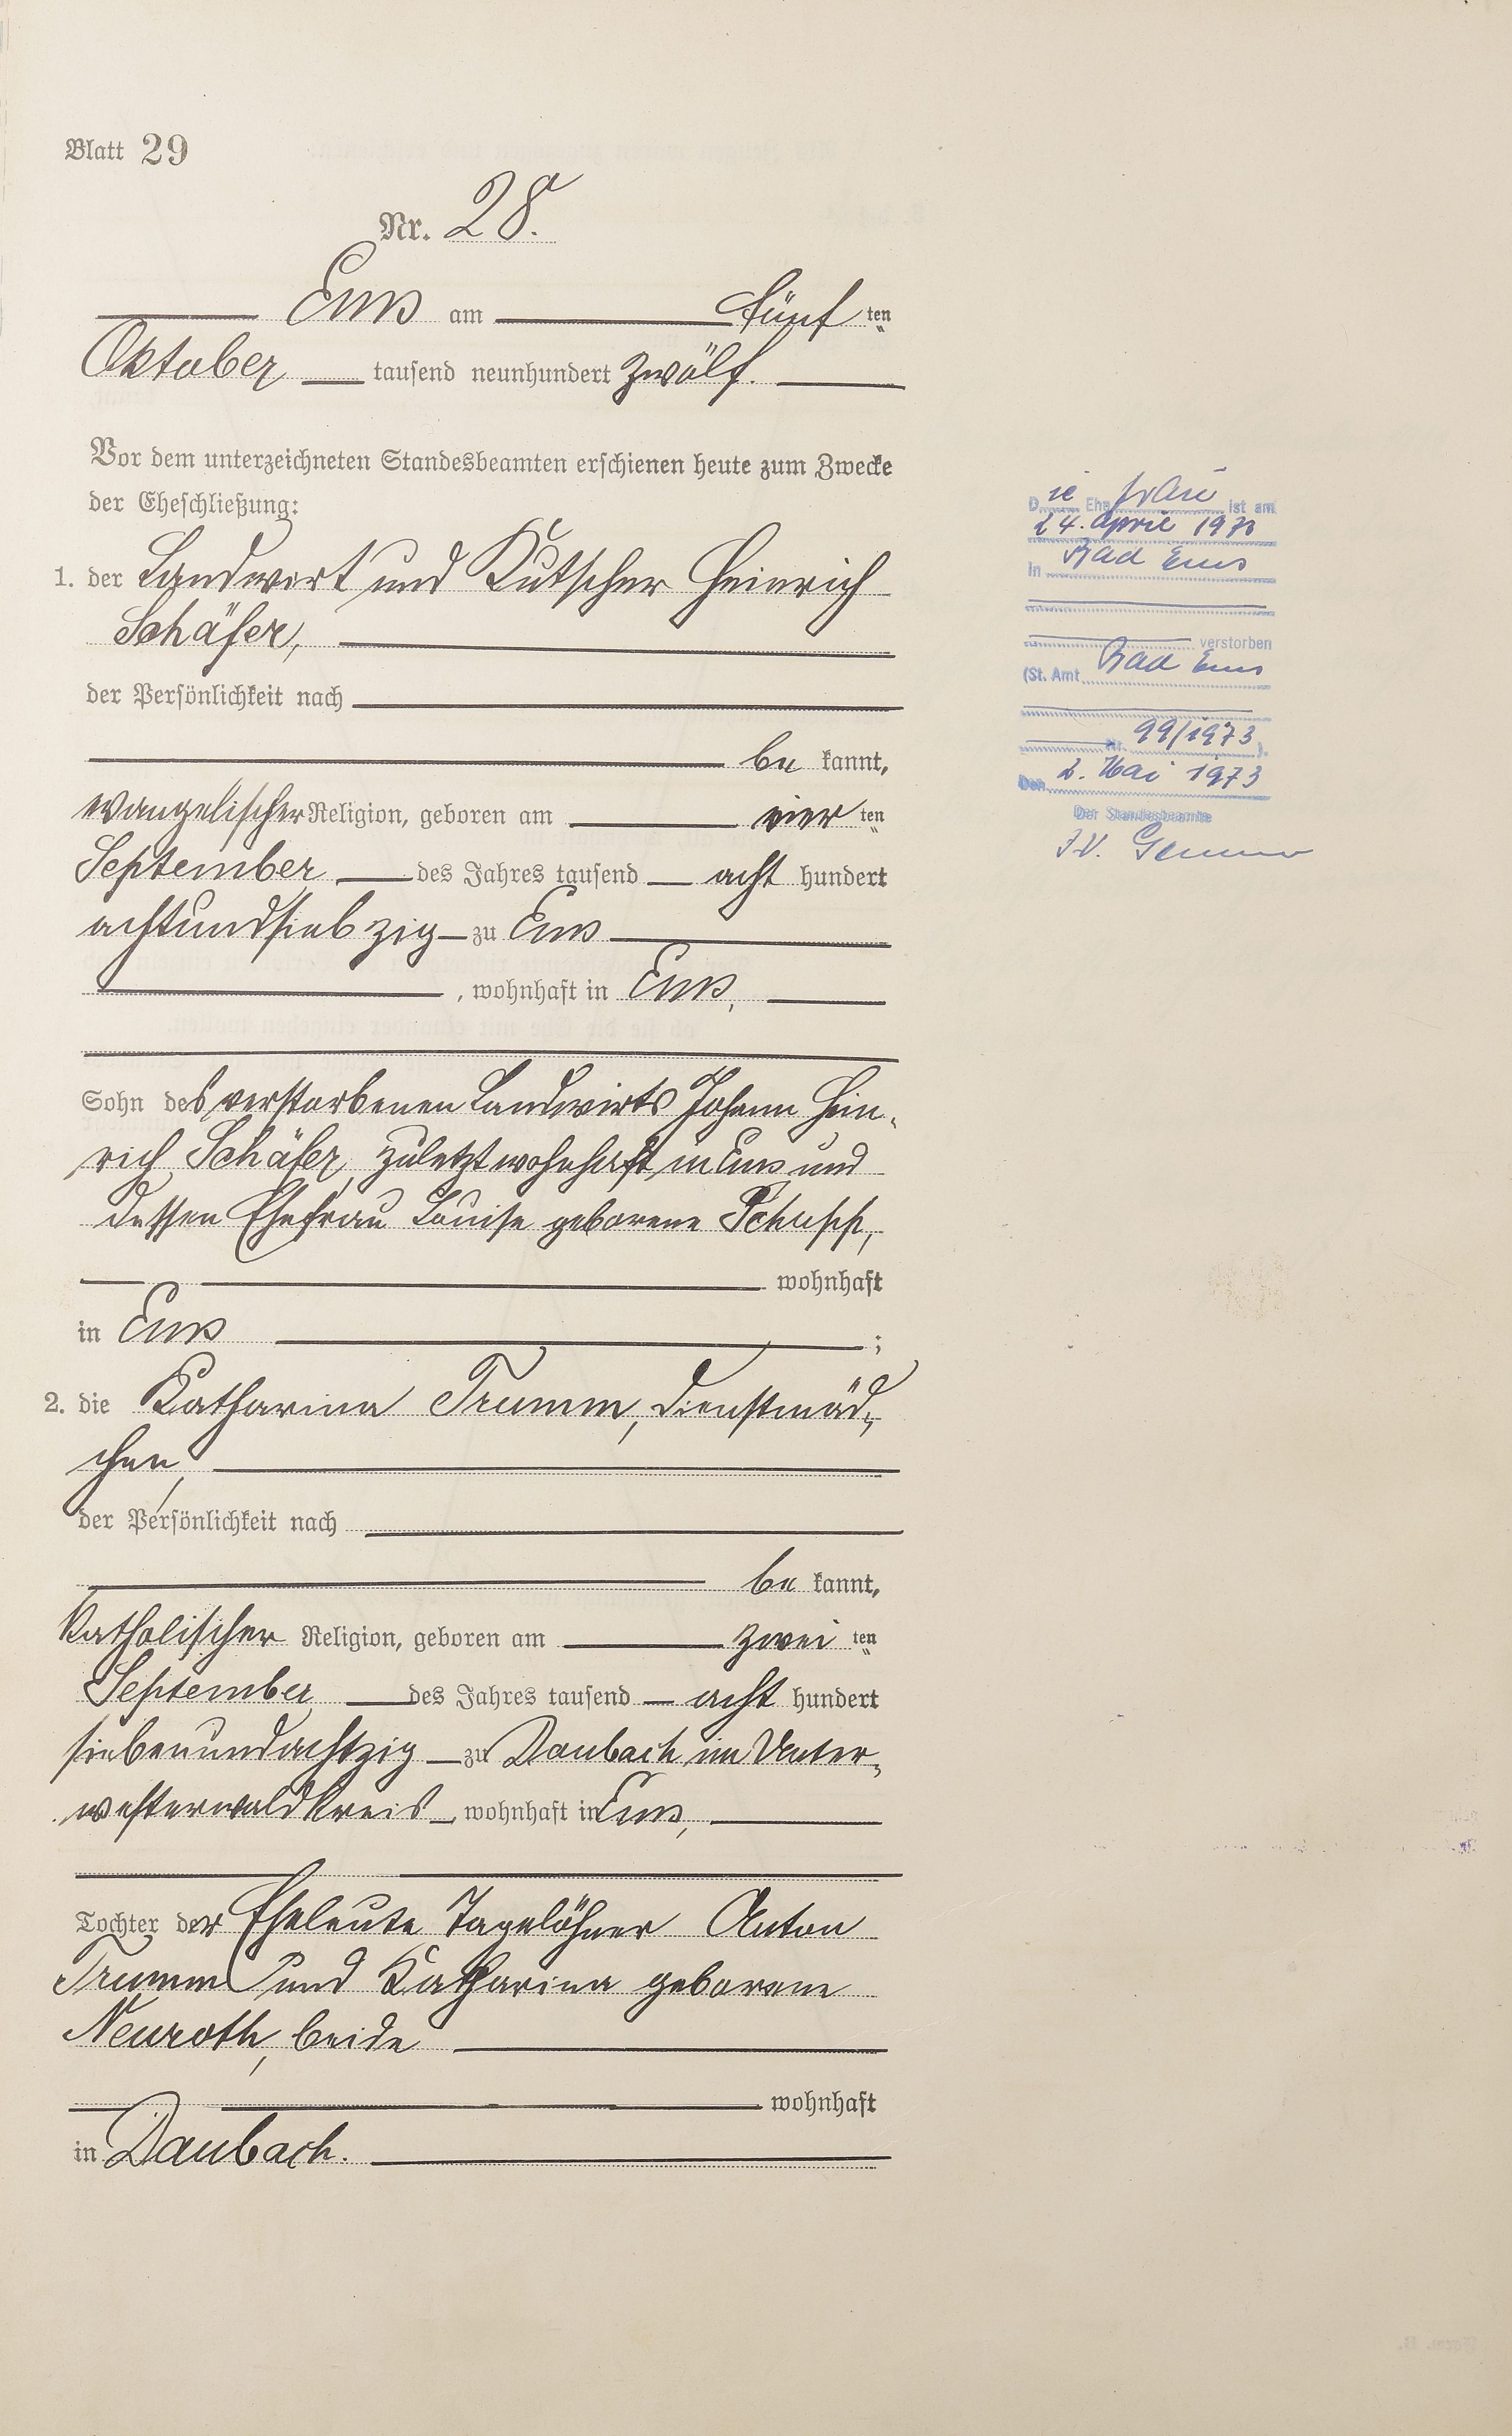 Blatt 29
Nr. 28.
Ems am fünf ten
Oktober tausend neunhundert zwölf.
Vor dem unterzeichneten Standesbeamten erschienen heute zum Zwecke
der Eheschließung:
1. der Landwirt und Kutscher Heinrich
Schäfer,
der Persönlichkeit nach
be kannt,
evangelischer Religion, geboren am vier ten
September des Jahres tausend acht hundert
achtundsiebzig zu Ems
, wohnhaft in Ems,
Sohn des verstorbenen Landwirts Johann Hein-
rich Schäfer, zuletzt wohnhaft in Ems und
dessen Ehefrau Louise geborene Schupp,
wohnhaft
in Ems ;
2. die Katharina Trumm, Dienstmäd-
chen,
der Persönlichkeit nach
be kannt,
katholischer Religion, geboren am zwei ten
September des Jahres tausend acht hundert
siebenundachtzig zu Daubach im Unter-
westerwaldkreis, wohnhaft in Ems,
Tochter der Eheleute Tagelöhner Anton
Trumm und Katharina geborene
Neuroth, beide
wohnhaft
in Daubach.
Die Ehefrau ist am
24. April 1973
in Bad Ems
verstorben
(St. Amt Bad Ems
Nr. 99/1973).
Den 2. Mai 1973
Der Standesbeamte
I.V.